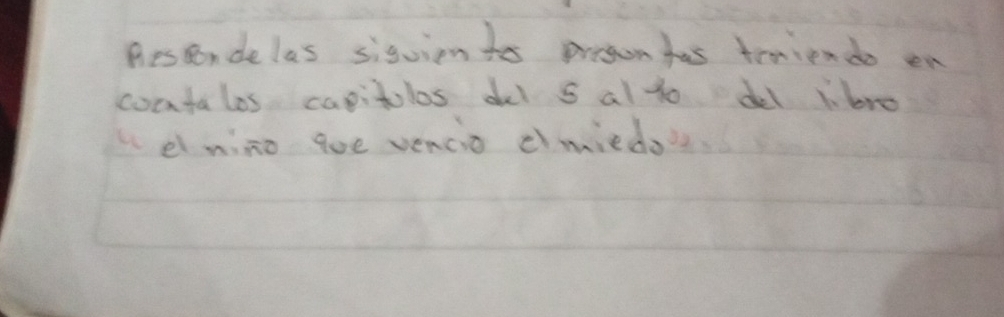 Responde las siguientes preguntas teniendo en
cuenta los capitulos del 5 al 10 del libro
"el niño que vencio el miedo".